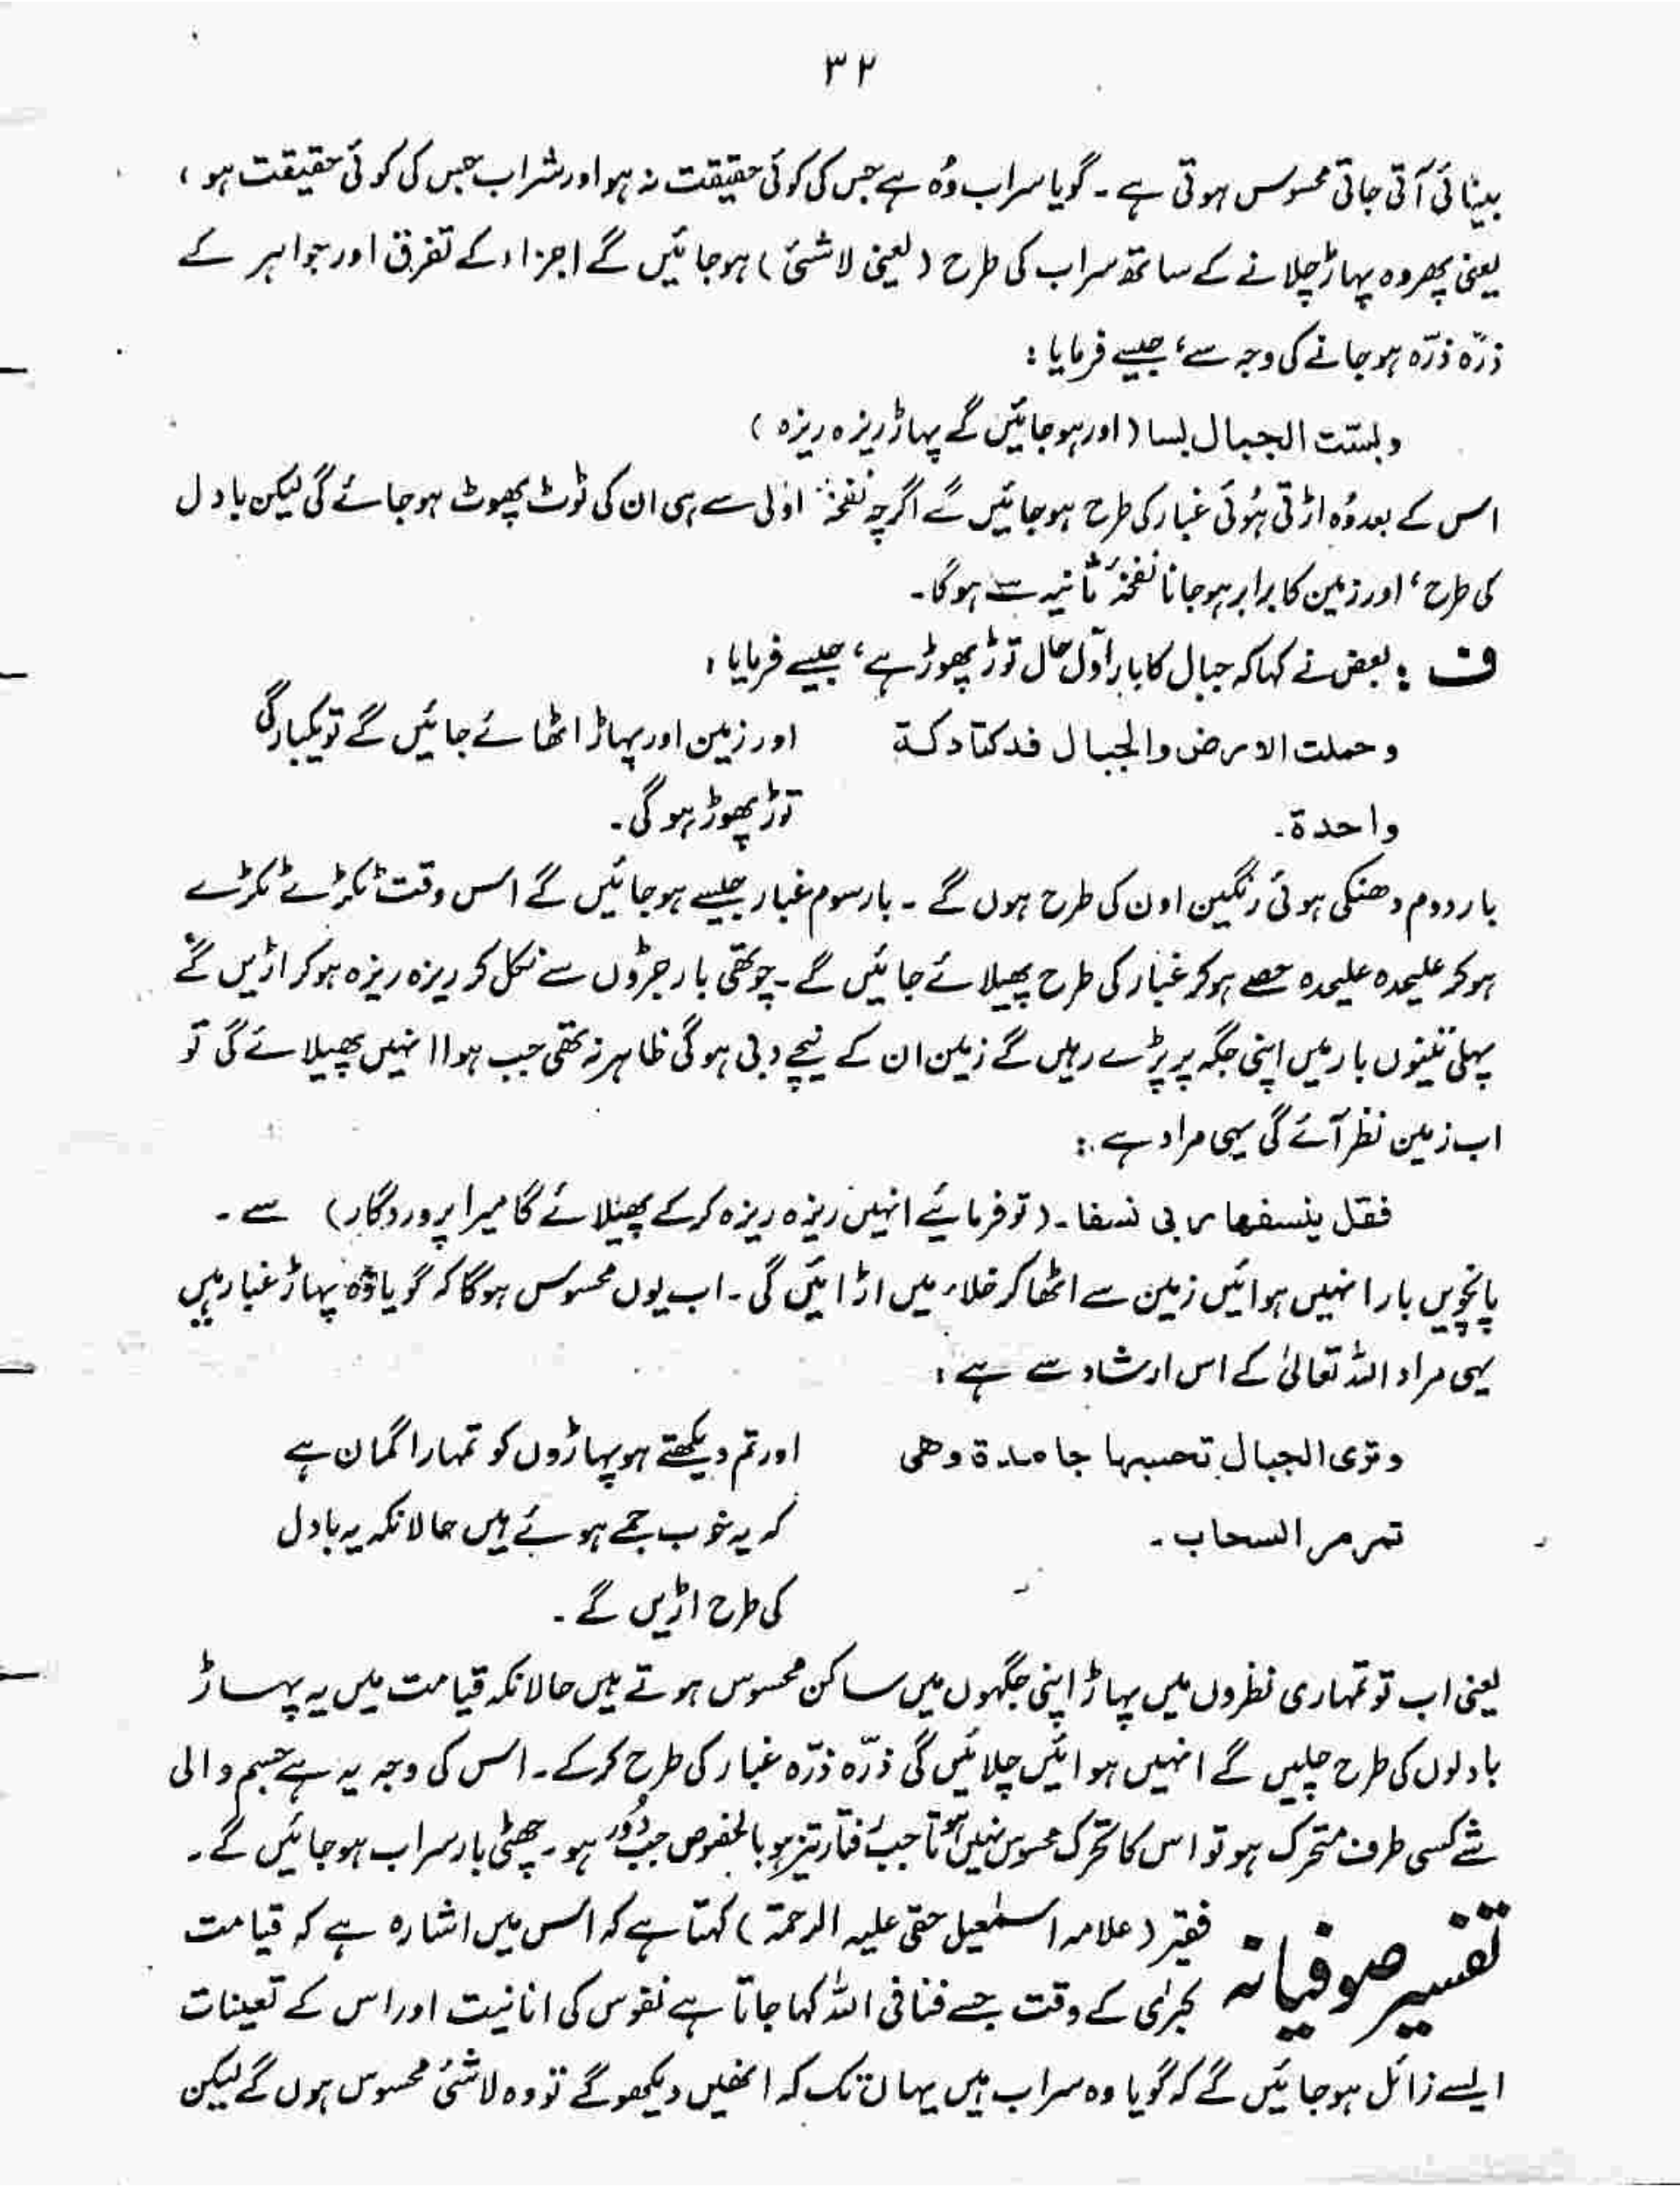 ۳۲
بینائی آتی جاتی محسوس ہوتی ہے ۔ گویا سراب وُہ ہے جس کی کوئی حقیقت نہ ہو اور شراب جس کی کوئی حقیقت ہو ،
یعنی پھر وہ پہاڑ چلانے کے ساتھ سراب کی طرح ( یعنی لاشیٔ ) ہو جائیں گے اجزاء کے تفرق اور جواہر کے
ذرّہ ذرّہ ہو جانے کی وجہ سے ، جیسے فرمایا :
وبسّت الجبال بسا ( اور ہو جائیں گے پہاڑ ریزہ ریزہ )
اس کے بعد وُہ اڑتی ہُوئی غبار کی طرح ہو جائیں گے اگرچہ نفخۂ اولٰی سے ہی ان کی ٹوٹ پھوٹ ہو جائے گی لیکن بادل
کی طرح ، اور زمین کا برابر ہو جانا نفخۂ ثانیہ سے ہوگا ۔
ف : بعض نے کہا کہ جبال کا بار اوّل حال توڑ پھوڑ ہے ، جیسے فرمایا :
وحملت الارض والجبال فدکتا دکۃ اور زمین اور پہاڑ اٹھائے جائیں گے تو یکبارگی
واحدۃ ۔ توڑ پھوڑ ہو گی ۔
بار دوم دھنکی ہوئی رنگین اون کی طرح ہوں گے ۔ بار سوم غبار جیسے ہو جائیں گے اس وقت ٹکڑے ٹکڑے
ہو کر علیحدہ علیحدہ حصے ہو کر غبار کی طرح پھیلائے جائیں گے ۔ چوتھی بار جڑوں سے نکل کر ریزہ ریزہ ہو کر اڑیں گے
پہلی تینوں بار میں اپنی جگہ پر پڑے رہیں گے زمین ان کے نیچے دبی ہو گی ظاہر نہ تھی جب ہوا انہیں پھیلائے گی تو
اب زمین نظر آئے گی یہی مراد ہے :
فقل ینسفھا ربی نسفا ۔ ( تو فرمائیے انہیں ریزہ ریزہ کر کے پھیلائے گا میرا پروردگار ) سے ۔
پانچویں بار انہیں ہوائیں زمین سے اٹھا کر خلاء میں اڑائیں گی ۔ اب یوں محسوس ہوگا کہ گویا وُہ پہاڑ غبار ہیں
یہی مراد اللہ تعالیٰ کے اس ارشاد سے ہے :
وتری الجبال تحسبہا جامدۃ وھی اور تم دیکھتے ہو پہاڑوں کو تمہارا گمان ہے
تمر مر السحاب ۔ کہ یہ خوب جمے ہوئے ہیں حالانکہ یہ بادل
کی طرح اڑیں گے ۔
یعنی اب تو تمہاری نظروں میں پہاڑ اپنی جگہوں میں ساکن محسوس ہوتے ہیں حالانکہ قیامت میں یہ پہاڑ
بادلوں کی طرح چلیں گے انہیں ہوائیں چلائیں گی ذرّہ ذرّہ غبار کی طرح کر کے ۔ اس کی وجہ یہ ہے جسم والی
شے کسی طرف متحرک ہو تو اس کا تحرک محسوس نہیں ہوتا جب رفتار تیز ہو بالخصوص جب دُور ہو ۔ چھٹی بار سراب ہو جائیں گے ۔
تفسیر صوفیانہ فقیر ( علامہ اسمٰعیل حقی علیہ الرحمۃ ) کہتا ہے کہ اس میں اشارہ ہے کہ قیامت
کبرٰی کے وقت جسے فنا فی اللہ کہا جاتا ہے نفوس کی انانیت اور اس کے تعینات
ایسے زائل ہو جائیں گے کہ گویا وہ سراب ہیں یہاں تک کہ انھیں دیکھو گے تو وہ لاشیٔ محسوس ہوں گے لیکن